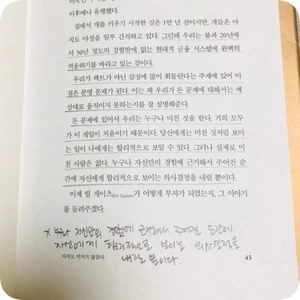 이후에나 유행했다.
집에서 개를 키우기 시작한 것은 1만 년 전이지만, 개들은 아직도 야성을 일부 간직하고 있다. 그런데 우리는 불과 20년에
서 50년 정도의 경험밖에 없는 현대적 금융 시스템에 완벽히
적응하기를 바라고 있는 것이다.
우리가 팩트가 아닌 감정에 많이 휘둘린다는 주제에 있어 이
점은 분명 문제가 된다. 이는 왜 우리가 돈 문제에 대해서는 예
상대로 움직이지 못하는지를 잘 설명해준다.
돈 문제에 있어서 우리는 누구나 미친 짓을 한다. 거의 모두
가 이 게임이 처음이기 때문이다. 당신에게는 미친 짓처럼 보이
는 일이 나에게는 합리적으로 보일 수 있다. 그러나 실제로 미
친 사람은 없다. 누구나 자신만의 경험에 근거해서 주어진 순
간에 자신에게 합리적으로 보이는 의사결정을 내릴 뿐이다.
이제 빌 게이츠Bill Gates가 어떻게 부자가 되었는지, 그 이야기
를 들려주겠다.
* 누구나 자신만의 경험에 근거해서 주어진 순간에
자신에게 합리적으로 보이는 의사결정을
내릴 뿐이다.
아무도 미치지 않았다
43